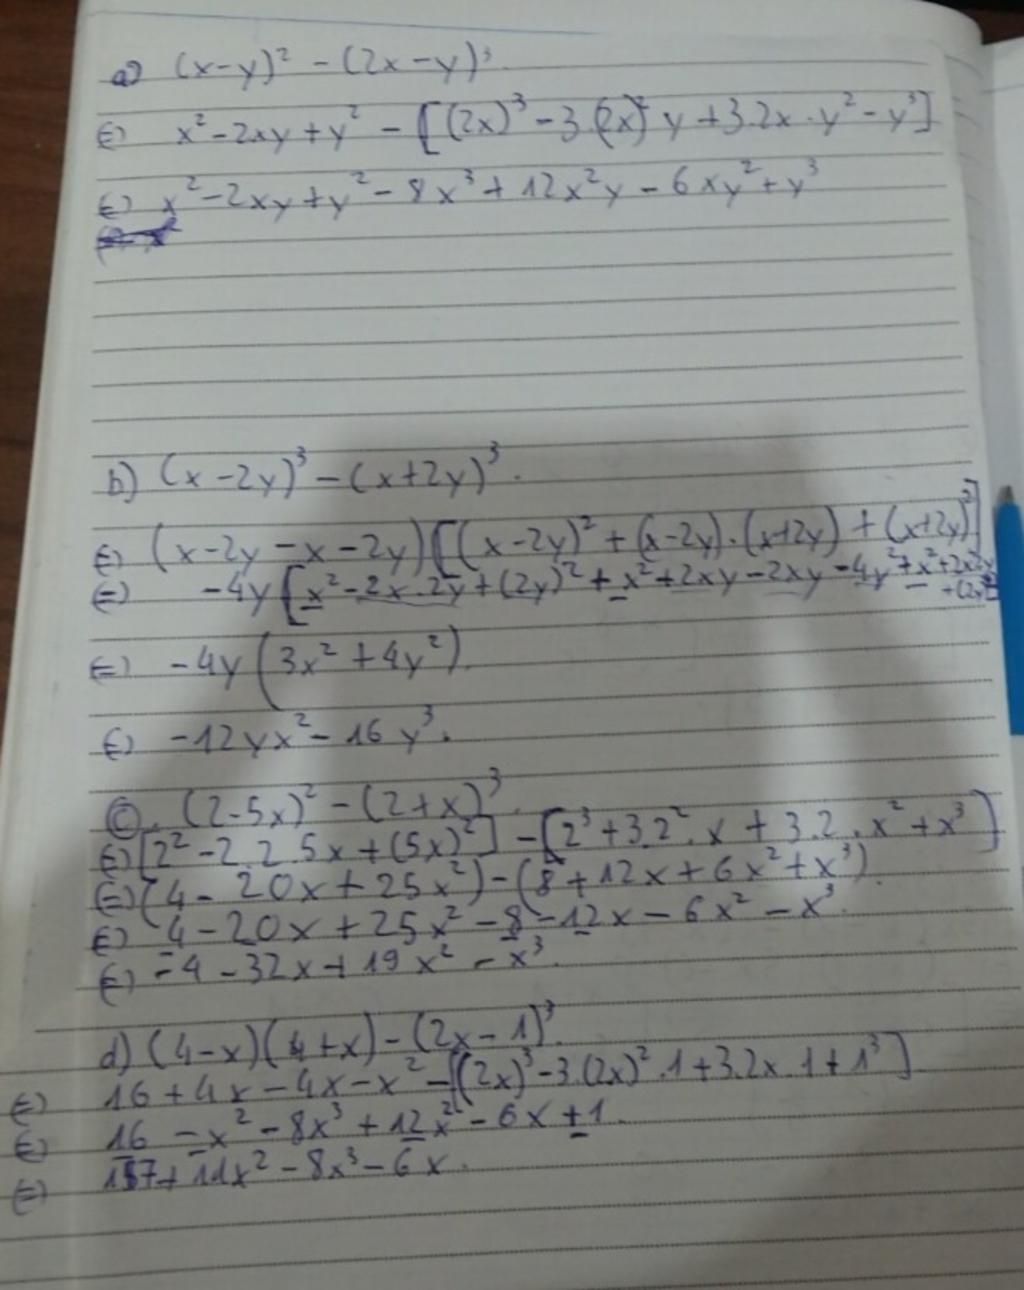 a) (x-y)² - (2x-y)³.
⇔ x² - 2xy + y² - [(2x)³ - 3.(2x)² y + 3.2x.y² - y³]
⇔ x² - 2xy + y² - 8x³ + 12x²y - 6xy² + y³
b) (x-2y)³ - (x+2y)³.
⇔ (x-2y-x-2y)[(x-2y)² + (x-2y).(x+2y) + (x+2y)²]
⇔ -4y[x² - 2x.2y + (2y)² + x² + 2xy - 2xy - 4y² + x² + 2x2y + (2y)²]
⇔ -4y(3x² + 4y²)
⇔ -12yx² - 16y³.
c). (2-5x)² - (2+x)³.
⇔ [2² - 2.2.5x + (5x)²] - [2³ + 3.2².x + 3.2.x² + x³]
⇔ (4 - 20x + 25x²) - (8 + 12x + 6x² + x³).
⇔ 4 - 20x + 25x² - 8 - 12x - 6x² - x³.
⇔ -4 - 32x + 19x² - x³.
d) (4-x)(4+x) - (2x-1)³.
⇔ 16 + 4x - 4x - x² - [(2x)³ - 3.(2x)².1 + 3.2x.1 + 1³]
⇔ 16 - x² - 8x³ + 12x² - 6x + 1.
⇔ 17 + 11x² - 8x³ - 6x.